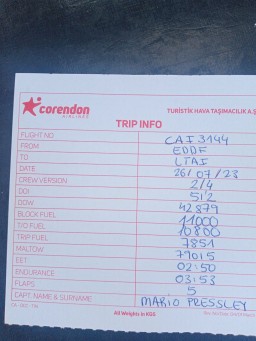 corendon
AIRLINES
TURİSTİK HAVA TAŞIMACILIK A.Ş
TRIP INFO
FLIGHT NO CAI 3144
FROM EDDF
TO LTAI
DATE 26/07/23
CREW VERSION 2/4
DOI 51'2
DOW 42879
BLOCK FUEL 11000
T/O FUEL 10800
TRIP FUEL 7851
MALTOW 79015
EET 02:50
ENDURANCE 03:53
FLAPS 5
CAPT. NAME & SURNAME MARIO PRESSLEY
All Weights in KGS